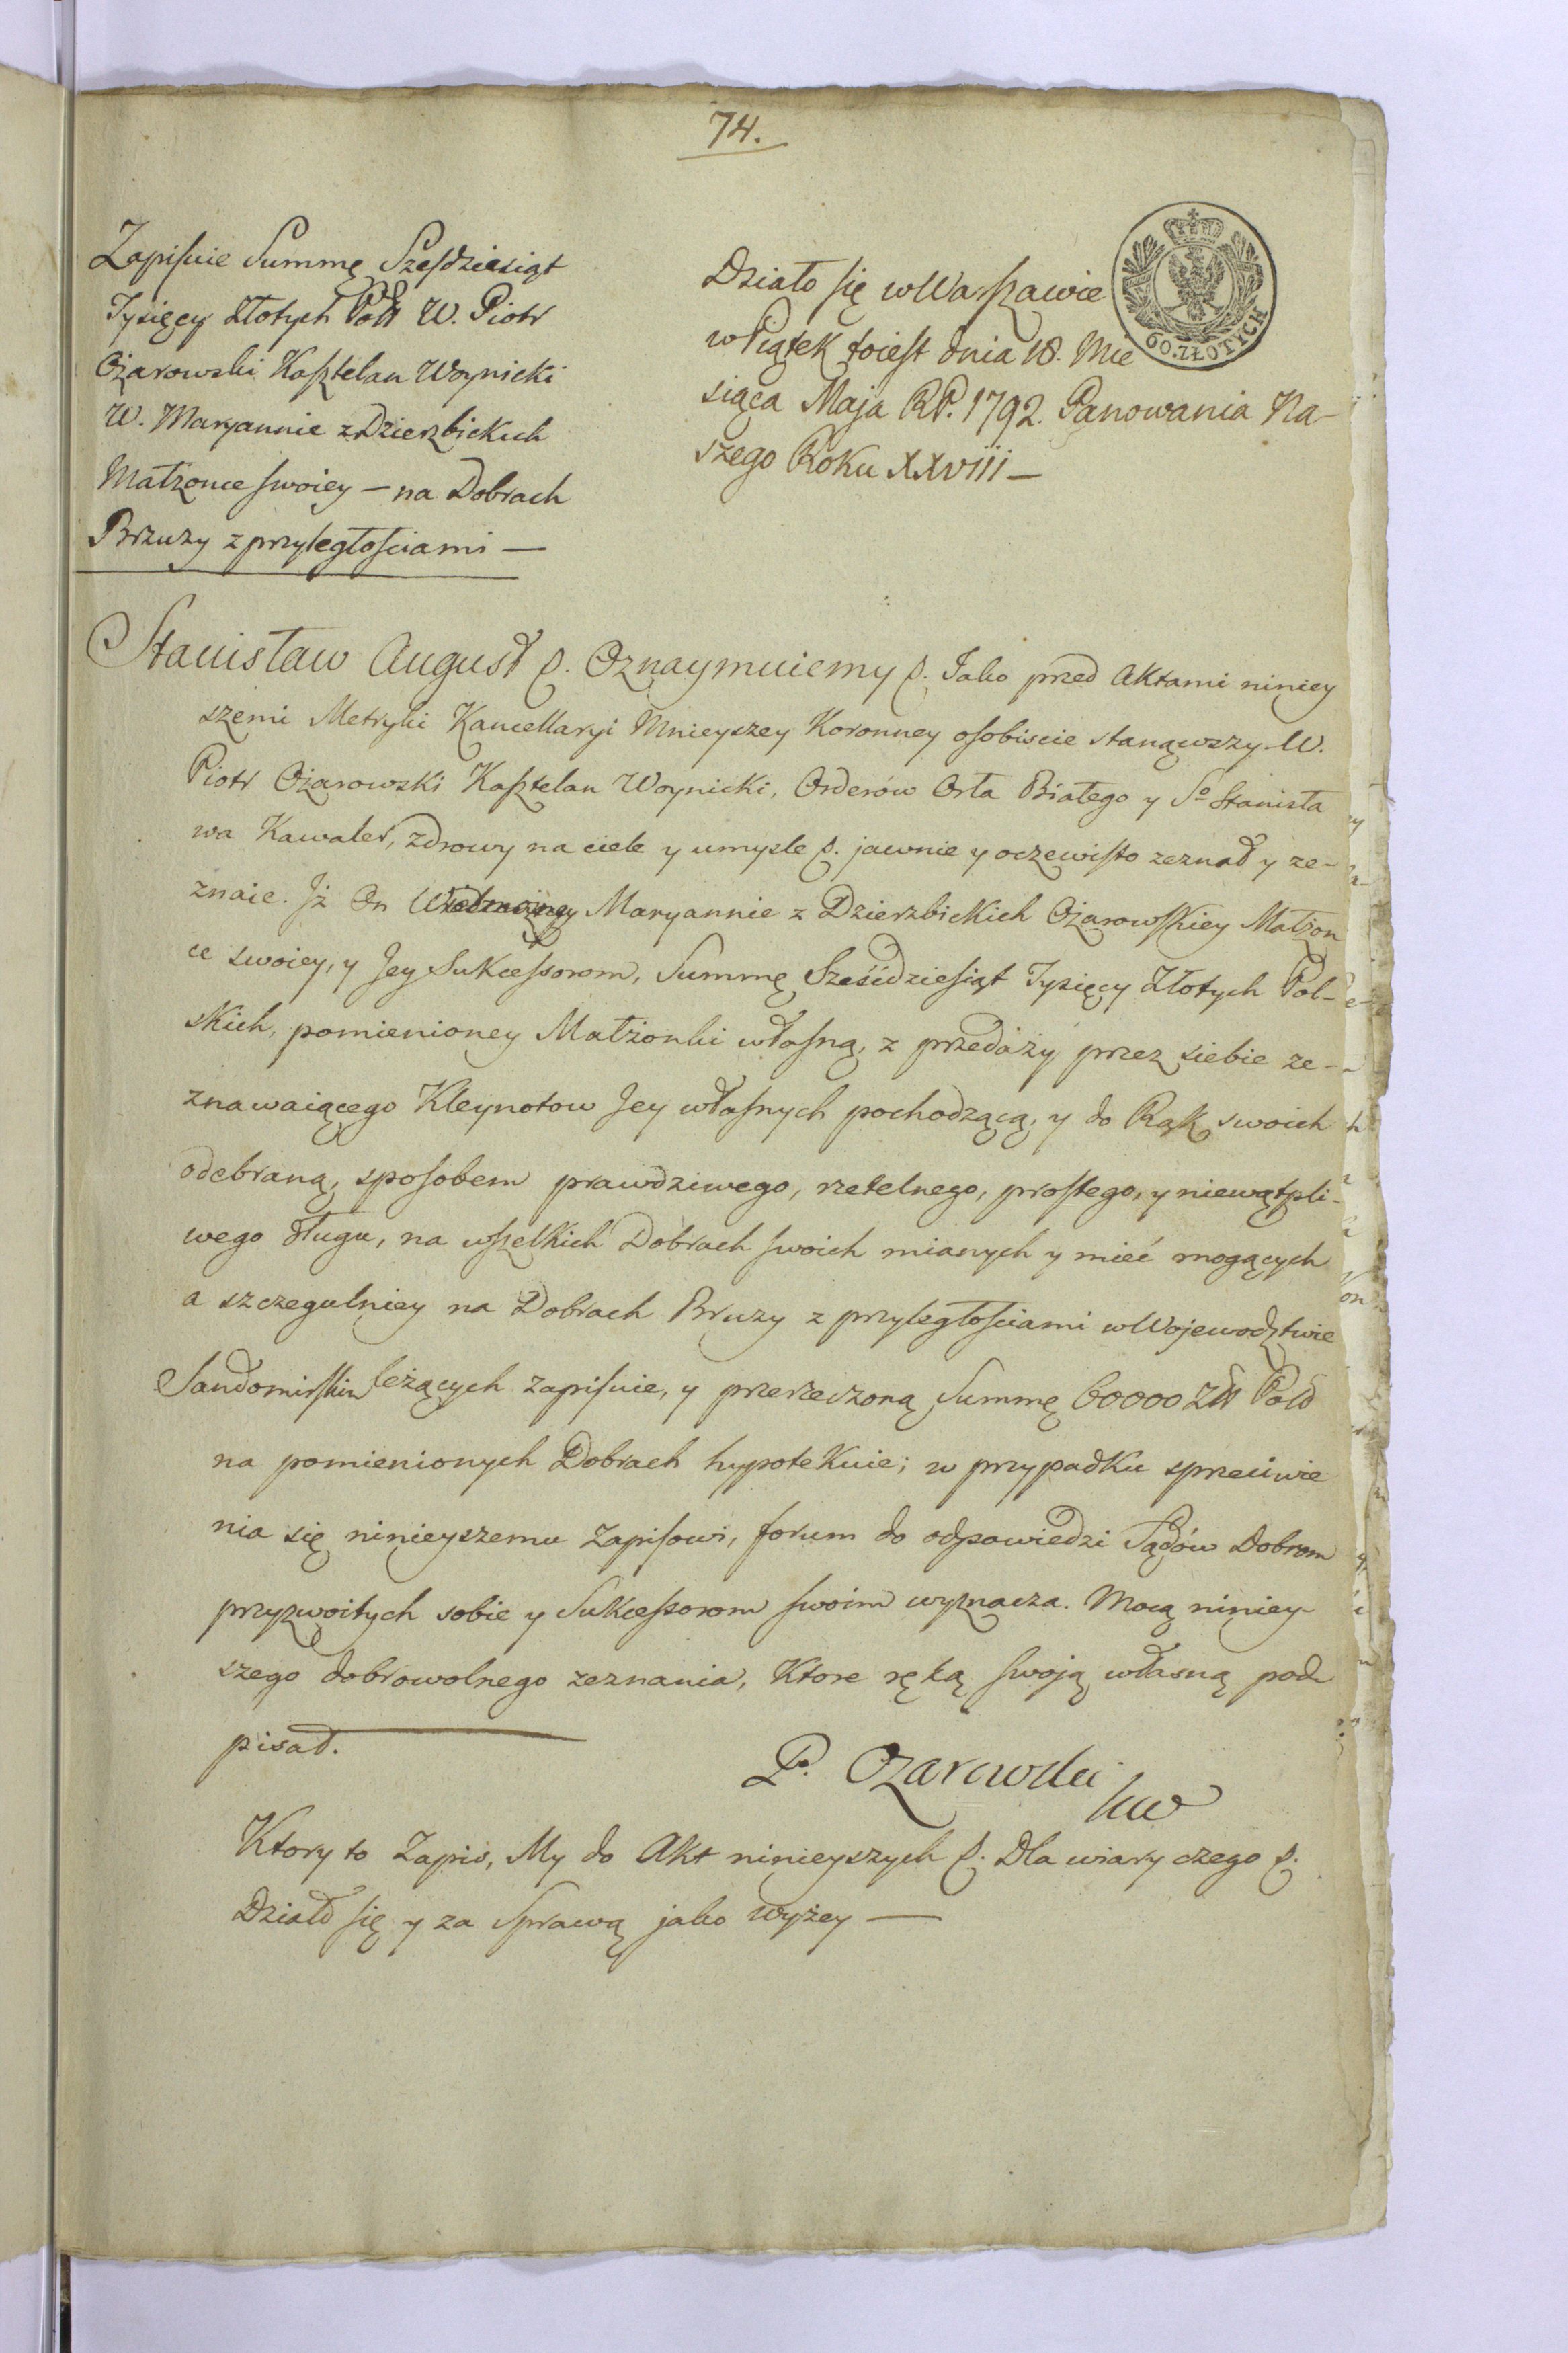 74.
Zapisuie Summę Szesdziesiąt
Tysięcy złotych Polł W. Piotr
Ożarowski Kasztelan Woynicki
W. Maryannie z Dzierzbickich
Małżonce swoiey — na Dobrach
Brzuzy z przyległościami —
Działo się w Warszawie
w Piątek toiest dnia 18. Mie
siąca Maja RP. 1792. Panowania Na-
szego Roku XXVIII —
60. ZŁOTYCH
Stanisław August p. Oznaymuiemy p. Jako przed Aktami niniey
szemi Metryki Kancellaryi Mnieyszey Koronney osobiscie stanąwszy W.
Piotr Ożarowski Kasztelan Woynicki, Orderów Orła Białego y So Stanisła
wa Kawaler, zdrowy na ciele y umysle p. jawnie y oczewisto zeznał y ze-
znaie. Jż On Maryannie z Dzierzbickich Ożarowskiey Małżon
ce swoiey, y Jey Sukcessorom, Summę Sześćdziesiąt Tysięcy Złotych Pol-
skich, pomienioney Małżonki własną, z przedaży przez siebie ze-
znawaiącego Kleynotow Jey własnych pochodzącą, y do Rąk swoich
odebraną, sposobem prawdziwego, rzetelnego, prostego, y niewątpli-
wego długu, na wszelkich Dobrach swoich mianych y mieć mogących
a szczegulniey na Dobrach Bruzy z przyległościami w Wojewodztwie
Sandomirskim leżących zapisuie, y przerzeczoną Summę 60000 Złł Pol
na pomienionych Dobrach hypotekuie; w przypadku sprzeciwie
nia się ninieyszemu Zapisowi, forum do odpowiedzi Sądów Dobrom
przyzwoitych sobie y Sukcessorom swoim wyznacza. Mocą niniey-
szego dobrowolnego zeznania, Ktore ręką swoją własną pod
pisał.
P. Ożarowski
kw
Ktory to Zapis, My do Akt ninieyszych p. Dla wiary czego p.
Działo się y za Sprawą jako wyżey —